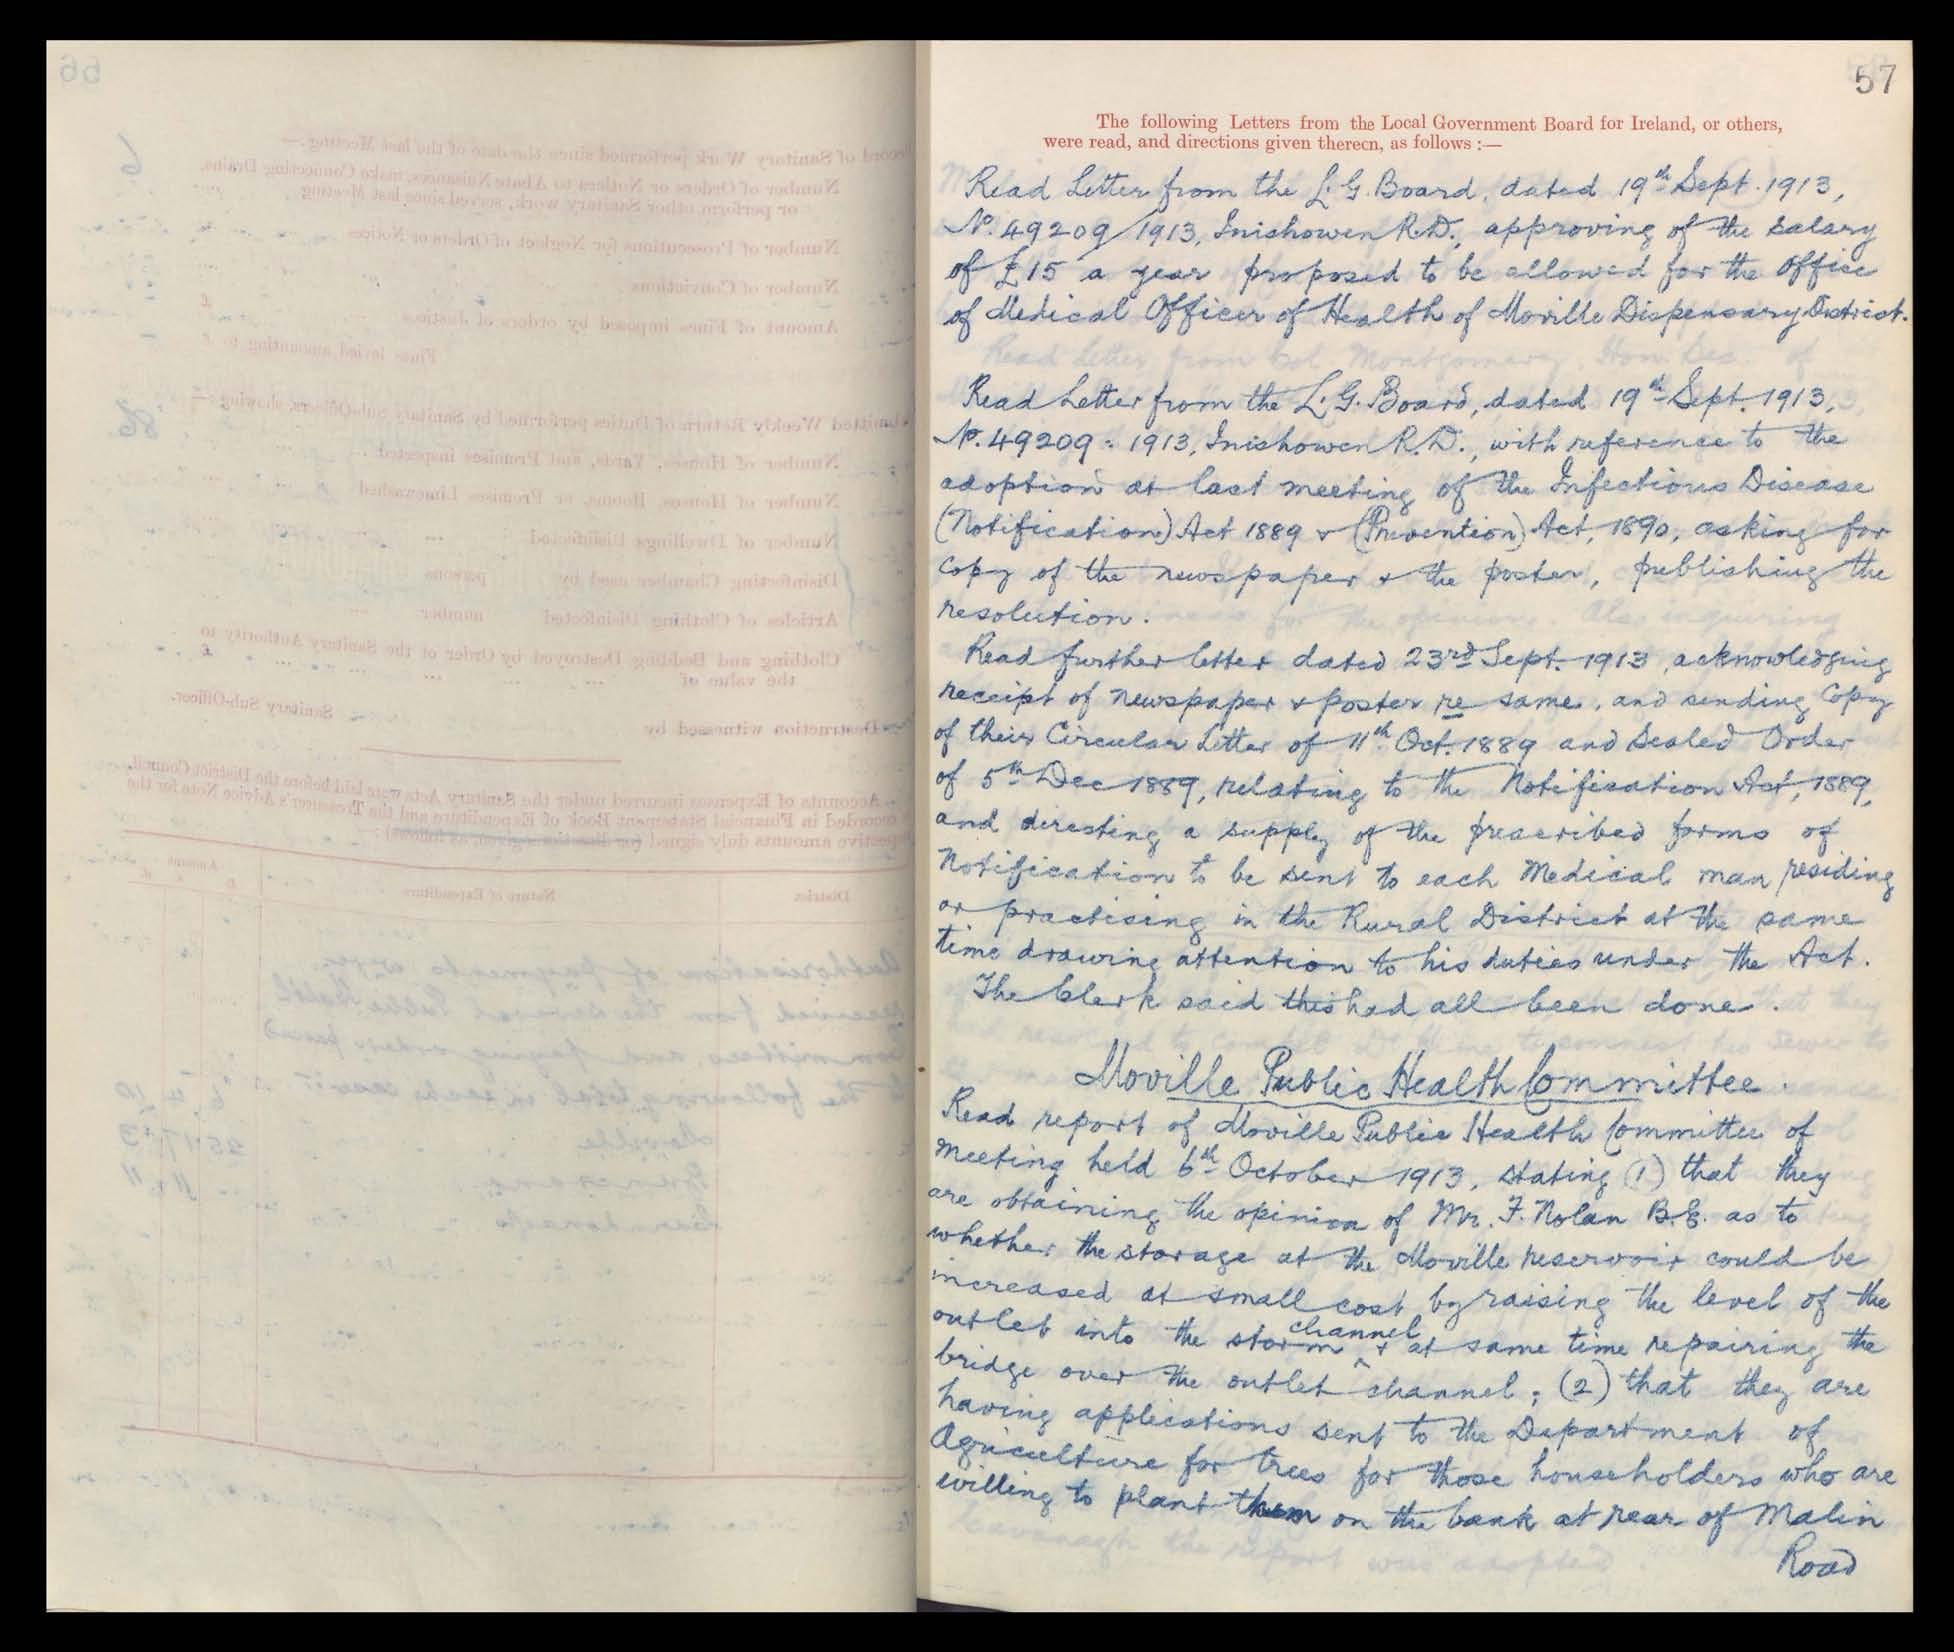 57
The following Letters from the Local Government Board for Ireland, or others,
were read, and directions given thereon, as follows :—
Read Letter from the L. G. Board, dated 19th Sept. 1913,
No. 49209/1913, Inishowen R.D., approving of the salary
of £15 a year proposed to be allowed for the office
of Medical Officer of Health of Moville Dispensary District.
Read Letter from the L. G. Board, dated 19th Sept. 1913,
No. 49209 : 1913, Inishowen R.D., with reference to the
adoption at last meeting of the Infectious Disease
(Notification) Act 1889 & (Prevention) Act, 1890, asking for
copy of the newspaper & the poster, publishing the
resolution.
Read further letter dated 23rd Sept. 1913, acknowledging
receipt of newspaper & poster re same, and sending Copy
of their Circular Letter of 11th Oct. 1889 and Sealed Order
of 5th Dec 1889, relating to the Notification Act, 1889,
and directing a supply of the prescribed forms of
Notification to be sent to each Medical man residing
or practising in the Rural District at the same
time drawing attention to his duties under the Act.
The Clerk said this had all been done.
Moville Public Health Committee.
Read report of Moville Public Health Committee of
Meeting held 6th October 1913, stating (1) that they
are obtaining the opinion of Mr. F. Nolan B.E. as to
whether the storage at the Moville reservoir could be
increased at small cost by raising the level of the
outlet into the storm channel & at same time repairing the
bridge over the outlet channel; (2) that they are
having applications sent to the Department of
Agriculture for trees for those householders who are
willing to plant them on the bank at rear of Malin
Road